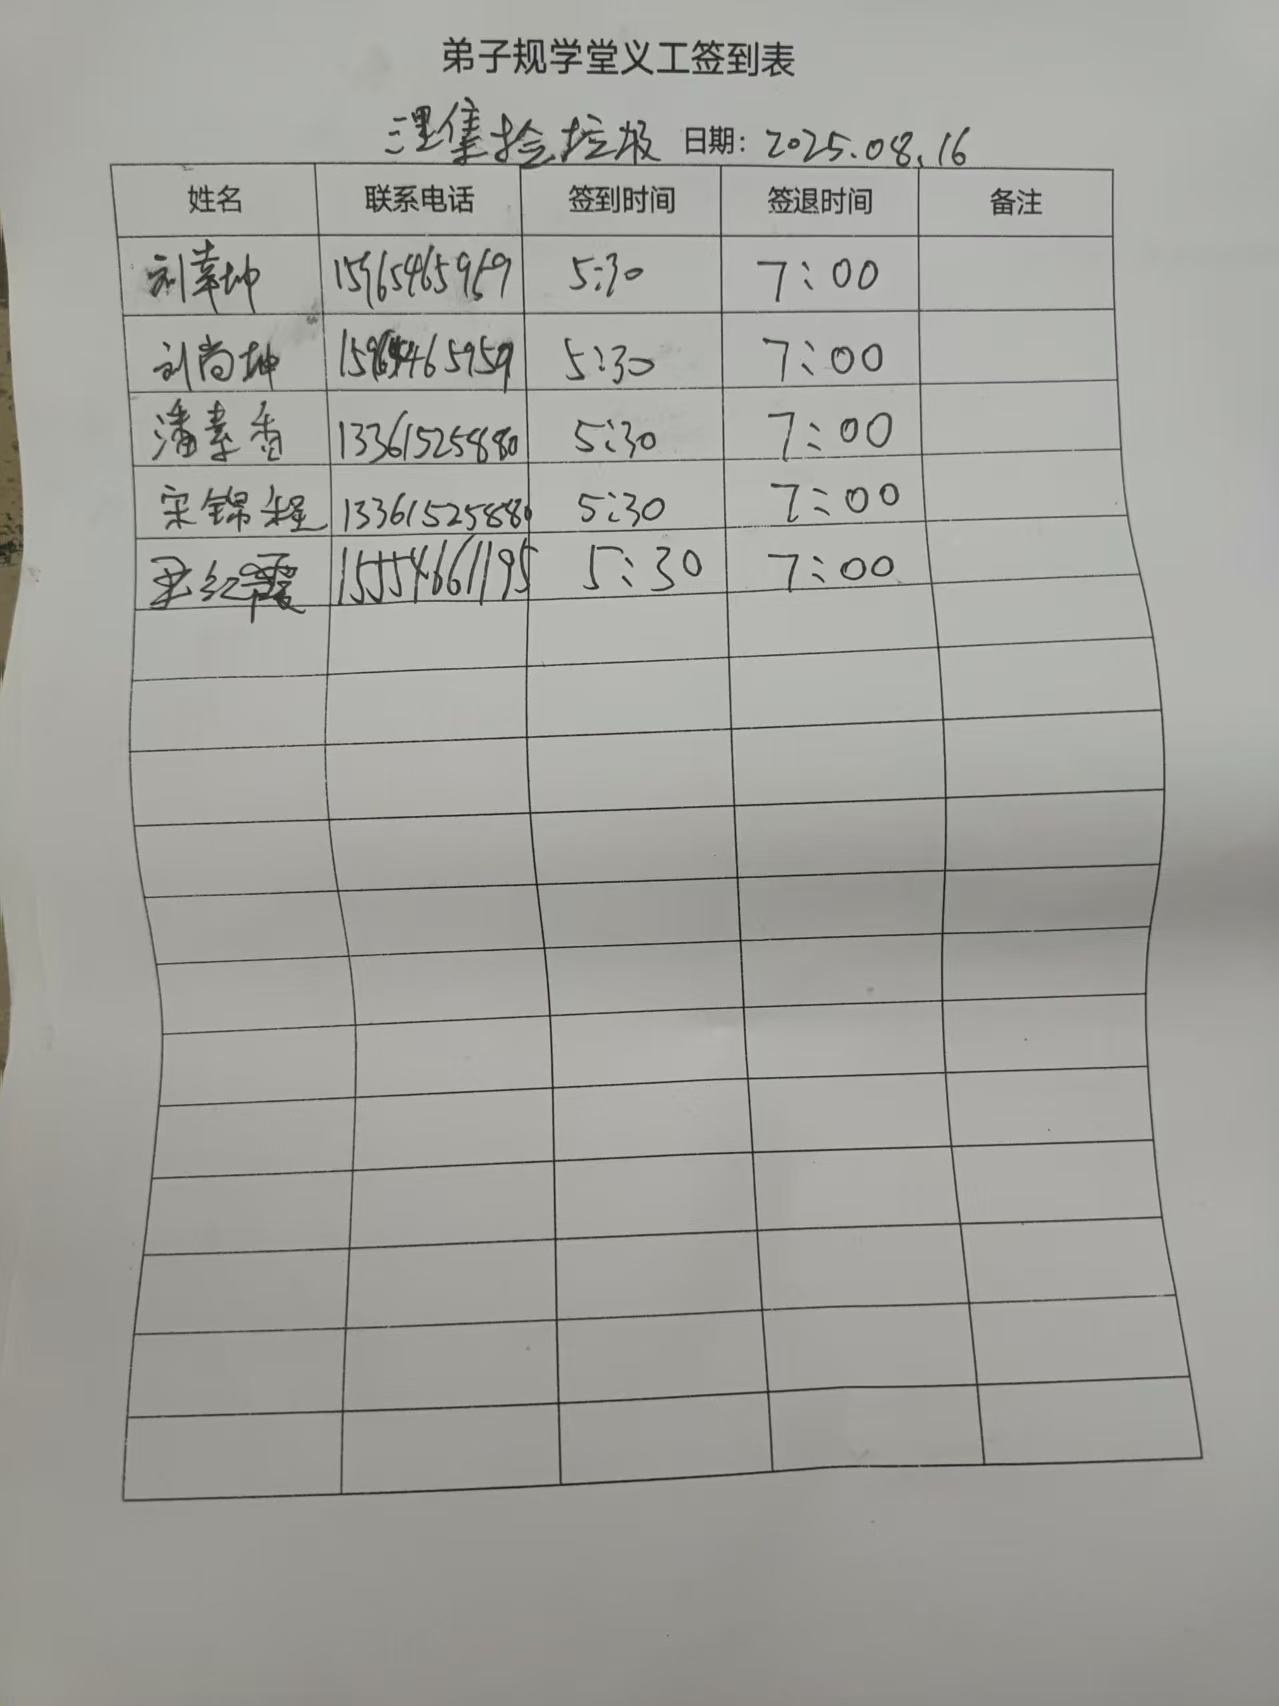 弟子规学堂义工签到表
三里集捡垃圾 日期: 2025.08.16
姓名 联系电话 签到时间 签退时间 备注
刘幸坤 15965465959 5:30 7:00
刘尚坤 5:30 7:00
潘素香 13361525880 5:30 7:00
宋锦程 13361525880 5:30 7:00
红霞 15554661195 5:30 7:00